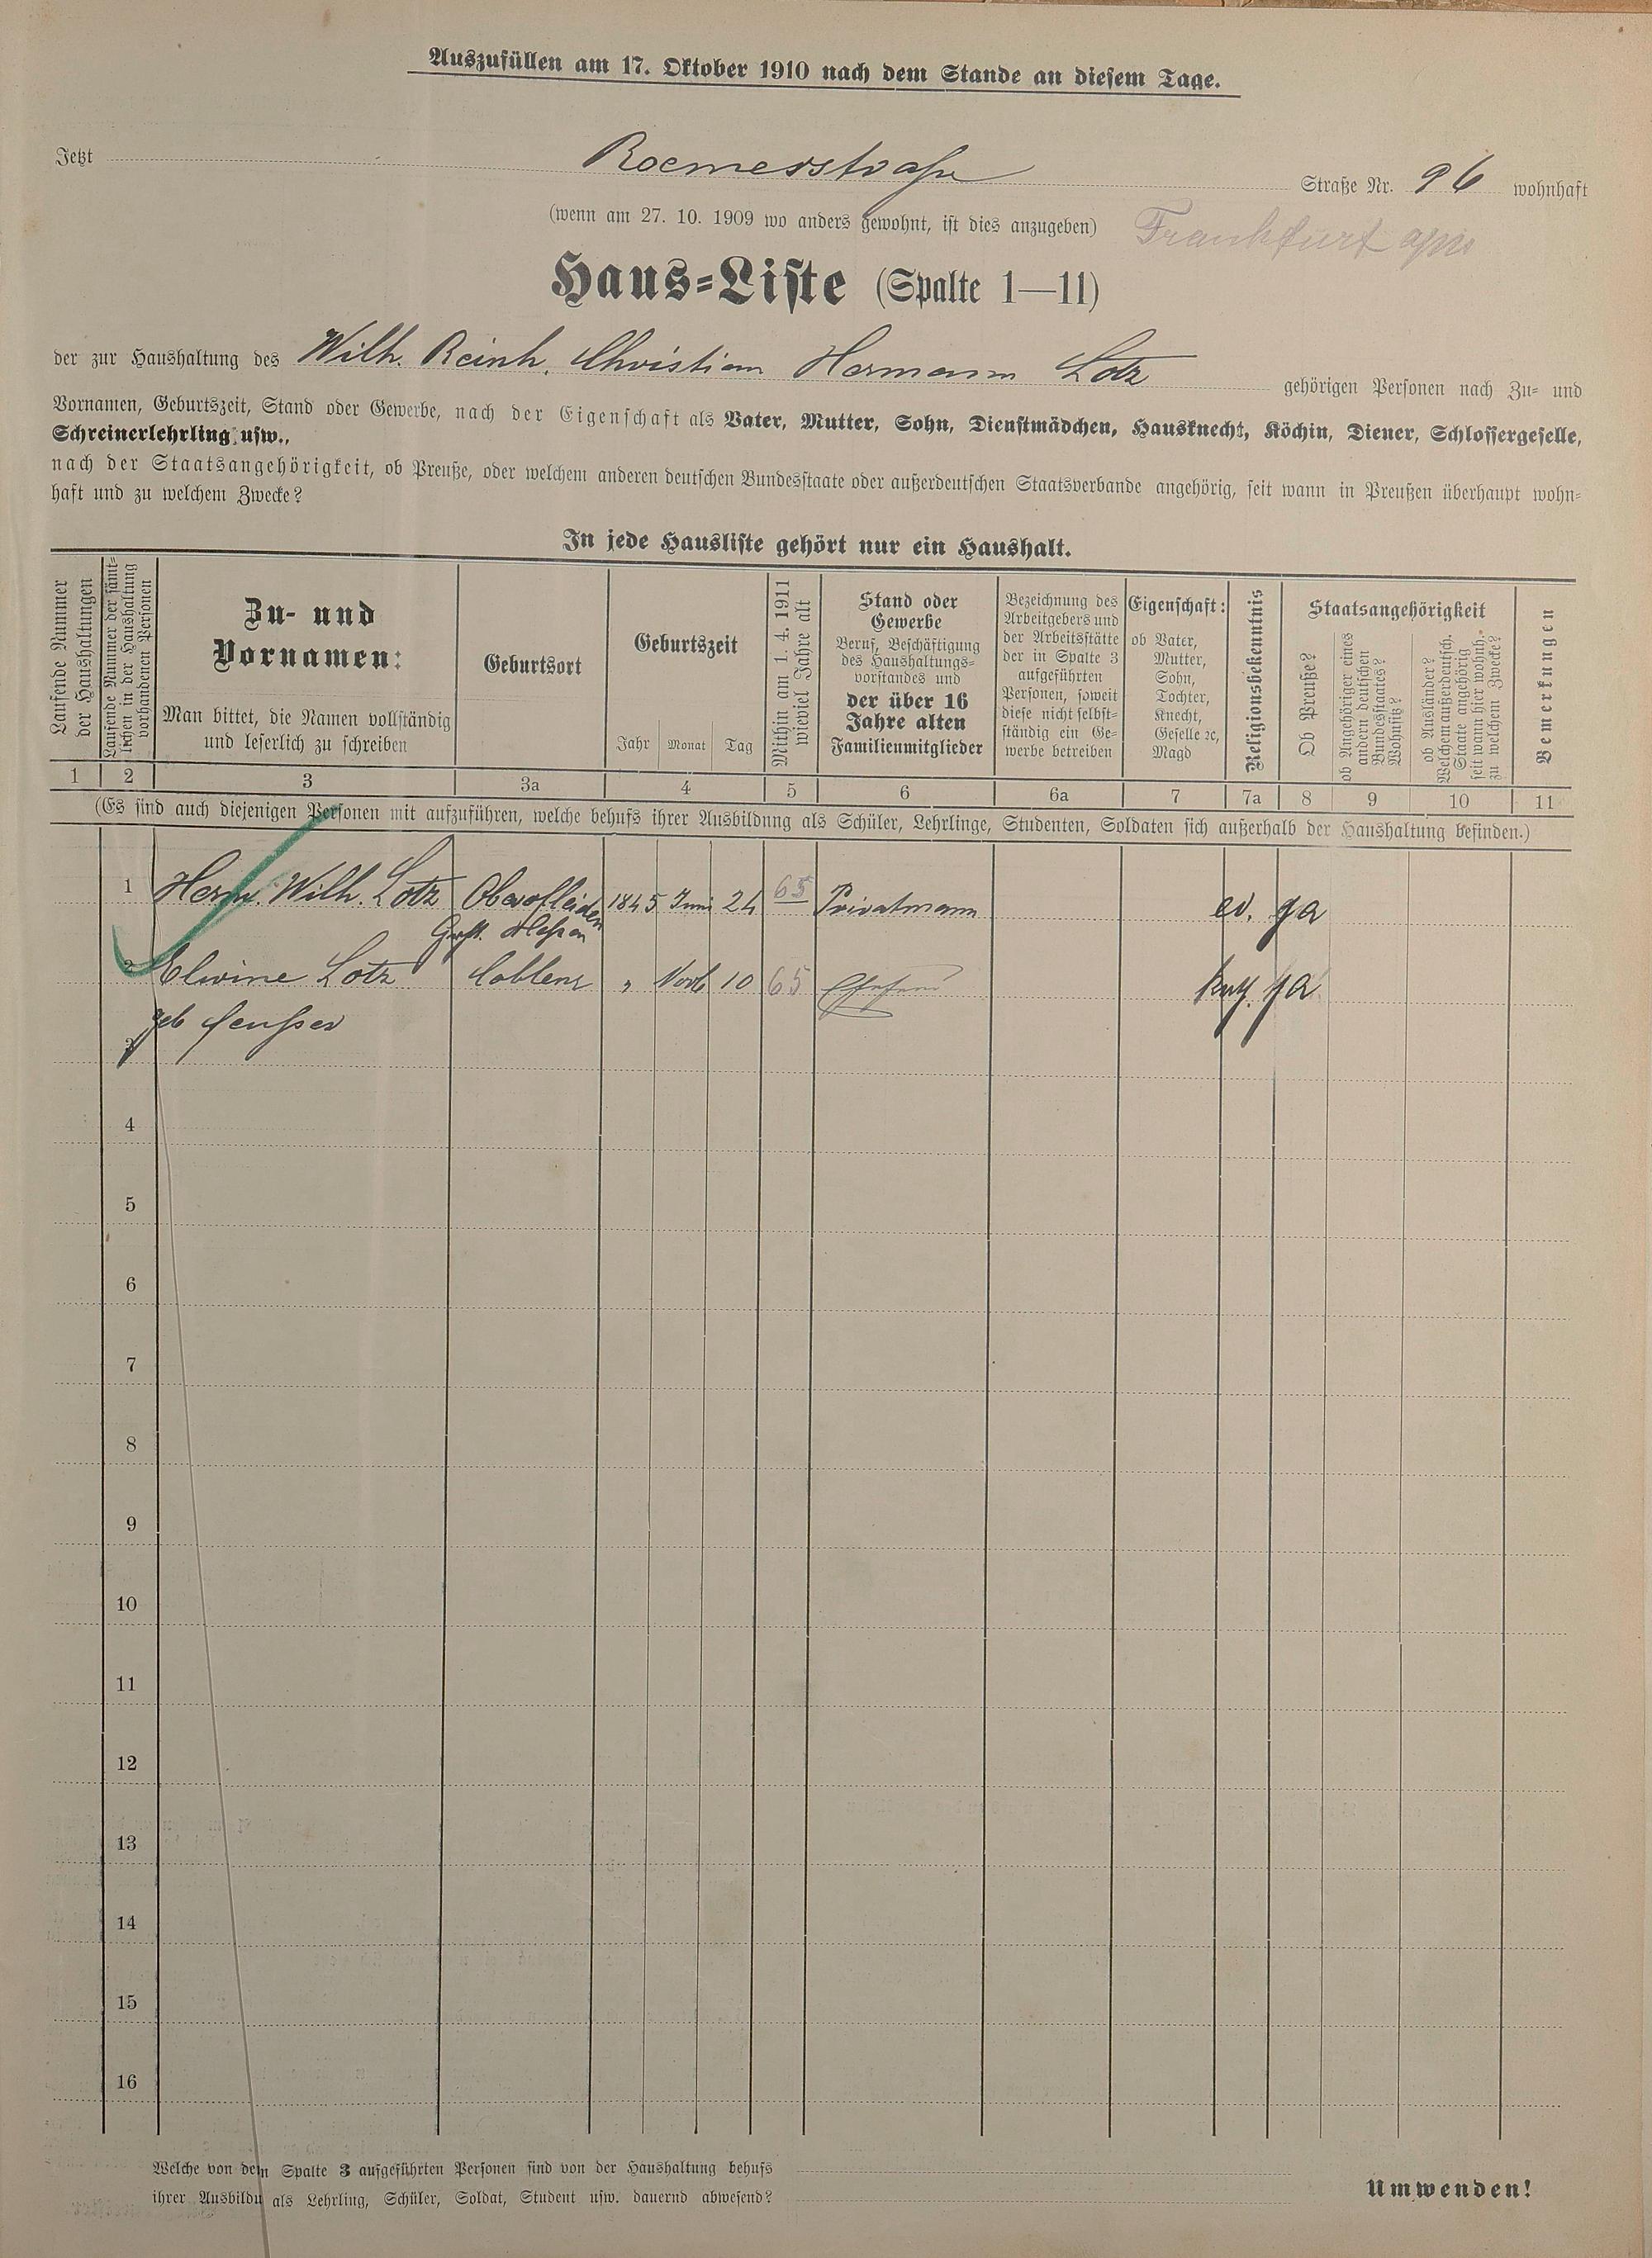 Auszufüllen am 17. Oktober 1910 nach dem Stande an diesem Tage.
Jetzt Roemerstraße Straße Nr. 96 wohnhaft
(wenn am 27. 10. 1909 wo anders gewohnt, ist dies anzugeben) Frankfurt
Haus-Liste (Spalte 1—11)
der zur Haushaltung des Wilh. Reinh. Christian Hermann Lotz gehörigen Personen nach Zu- und
Vornamen, Geburtszeit, Stand oder Gewerbe, nach der Eigenschaft als Vater, Mutter, Sohn, Dienstmädchen, Hausknecht, Köchin, Diener, Schlossergeselle,
Schreinerlehrling usw.,
nach der Staatsangehörigkeit, ob Preuße, oder welchem anderen deutschen Bundesstaate oder außerdeutschen Staatsverbande angehörig, seit wann in Preußen überhaupt wohn-
haft und zu welchem Zwecke?
In jede Hausliste gehört nur ein Haushalt.
Laufende Nummer
der Haushaltungen
Laufende Nummer der sämt-
lichen in der Haushaltung
vorhandenen Personen
Zu- und
Vornamen:
Man bittet, die Namen vollständig
und leserlich zu schreiben
Geburtsort
Geburtszeit
Jahr Monat Tag
Mithin am 1. 4. 1911
wieviel Jahre alt
Stand oder
Gewerbe
Beruf, Beschäftigung
des Haushaltungs-
vorstandes und
der über 16
Jahre alten
Familienmitglieder
Bezeichnung des
Arbeitgebers und
der Arbeitsstätte
der in Spalte 3
aufgeführten
Personen, soweit
diese nicht selbst-
ständig ein Ge-
werbe betreiben
Eigenschaft:
ob Vater,
Mutter,
Sohn,
Tochter,
Knecht,
Geselle ꝛc,
Magd
Religionsbekenntnis
Staatsangehörigkeit
Ob Preuße?
ob Angehöriger eines
andern deutschen
Bundesstaates?
Wohnsitz?
ob Ausländer?
Welchem außerdeutsch.
Staate angehörig
seit wann hier wohnh.
zu welchem Zwecke?
Bemerkungen
1 2 3 3a 4 5 6 6a 7 7a 8 9 10 11
(Es sind auch diejenigen Personen mit aufzuführen, welche behufs ihrer Ausbildung als Schüler, Lehrlinge, Studenten, Soldaten sich außerhalb der Haushaltung befinden.)
1 Herm. Wilh. Lotz Oberofleiden 1845 Juni 24 65 Privatmann ev. ja
Hessen
2 Elwine Lotz Coblenz " Novb 10 65 Ehefrau kath. ja
geb
3
4
5
6
7
8
9
10
11
12
13
14
15
16
Welche von dem Spalte 3 aufgeführten Personen sind von der Haushaltung behufs
ihrer Ausbildu als Lehrling, Schüler, Soldat, Student usw. dauernd abwesend?
Umwenden!